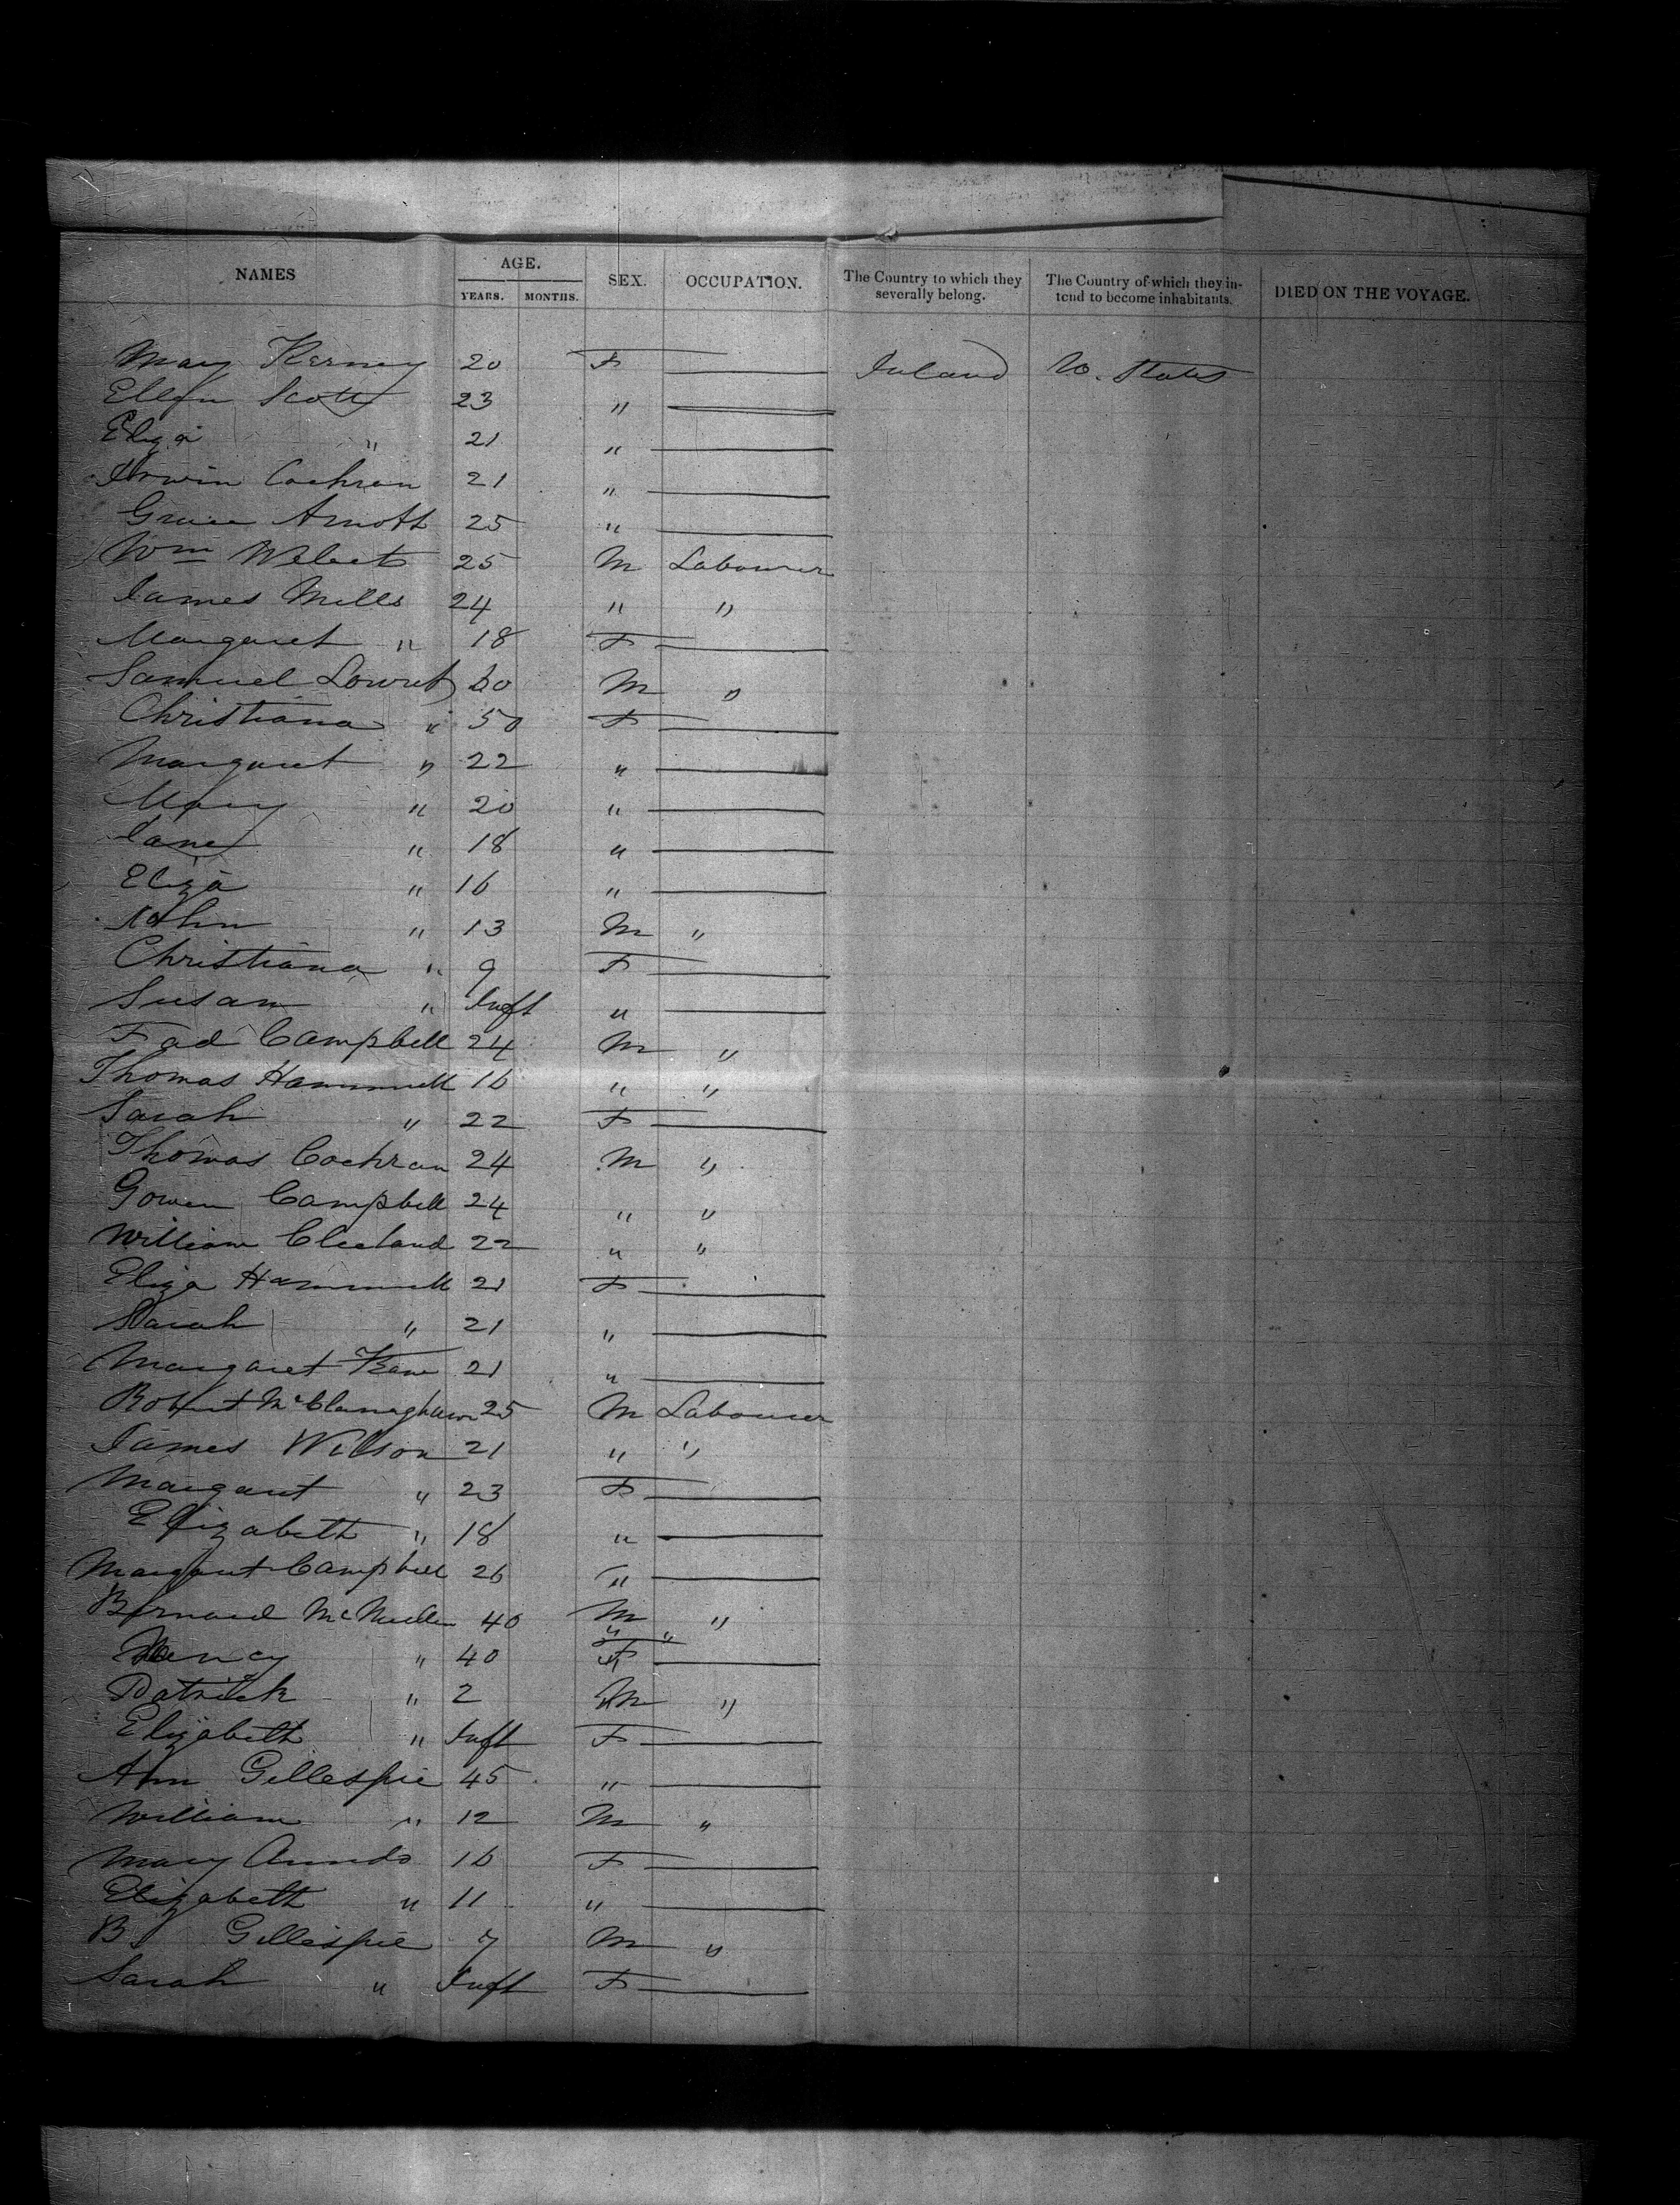 NAMES AGE. SEX. OCCUPATION. The Country to which they severally belong. The Country of which they in- tend to become inhabitants. DIED ON THE VOYAGE.
YEARS. MONTHS.
Mary Kerney 20 F Ireland U. States
Ellen Scott 23 "
Eliza " 21 "
Irwin Cochran 21 "
Grace Arnott 25 "
Wm 25 M Labourer
James Mills 24 " "
Margaret " 18 F
Samuel 60 M "
Christiana " 50 F
Margaret " 22 "
Mary " 20 "
Jane " 18 "
Eliza " 16 "
John " 13 M "
Christiana " 9 F
Susan " Inft "
Campbell 24 M "
Thomas Hammell 16 " "
Sarah " 22 F
Thomas Cochran 24 M "
Gowen Campbell 24 " "
William Cleeland 22 " "
Eliza Hammell 21 F
Sarah " 21 "
Margaret 21 "
Robert McClanaghan 25 M Labourer
James Wilson 21 " "
Margaret " 23 F
Elizabeth " 18 "
Margaret Campbell 26 "
Bernard McMullen 40 M "
Nancy " 40 F
Patrick " 2 M "
Elizabeth " Inft F
Ann Gillespie 45 "
William " 12 M "
Mary 16 F
Elizabeth " 11 "
B. Gillespie 7 M "
Sarah " Inft F